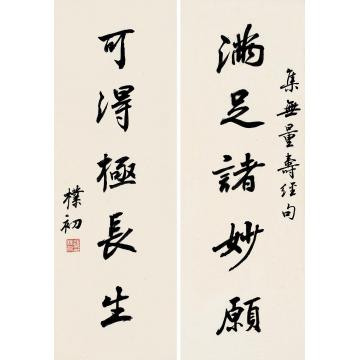 滿足諸妙願
集無量壽經句
可得極長生
樸初